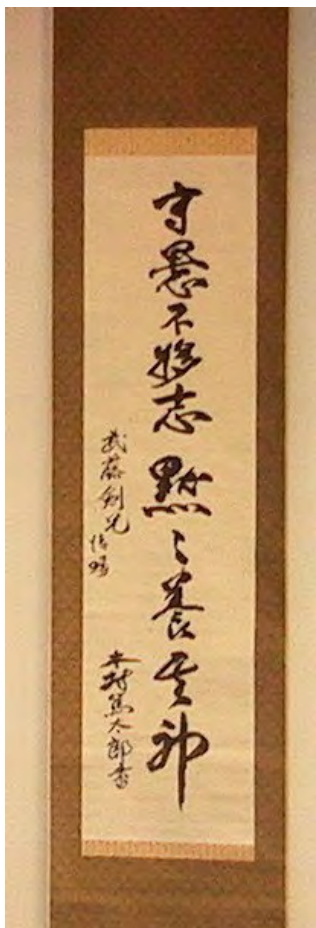 守愚不移志 黙々養其神
武藤剣兄
木村篤太郎書